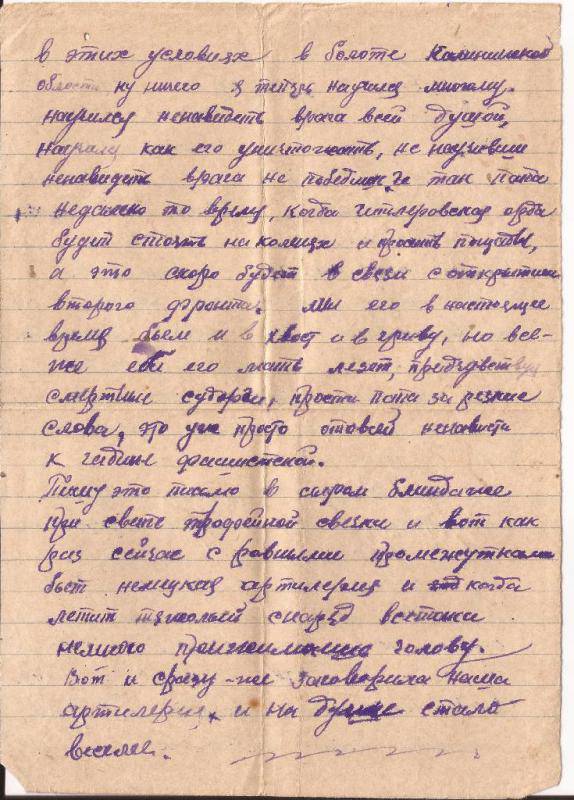 в этих условиях в болоте Калининской
области ну ничего я теперь научился многому.
научился ненавидеть врага всей душой,
научился как его уничтожать, не научивши
ненавидеть врага не победишь так папа
недалеко то время, когда гитлеровская орда
будет стоять на коленях и просить пощады,
а это скоро будет в связи с открытием
второго фронта. мы его в настоящее
время бьем и в хвост и в гриву, но все-
же его мать лезет, предчувствуя
смертные судороги, прости папа за резкие
слова, это уж просто от всей ненависти
к гадине фашистской.
Пишу это письмо в сыром блиндаже
при свете трофейной свечки и вот как
раз сейчас с равными промежутками
бьет немецкая артилерия и когда
летит тяжолый снаряд все таки
немного голову.
Вот и сразу-же заговорила наша
артилерия, и на душе стало
веселее.